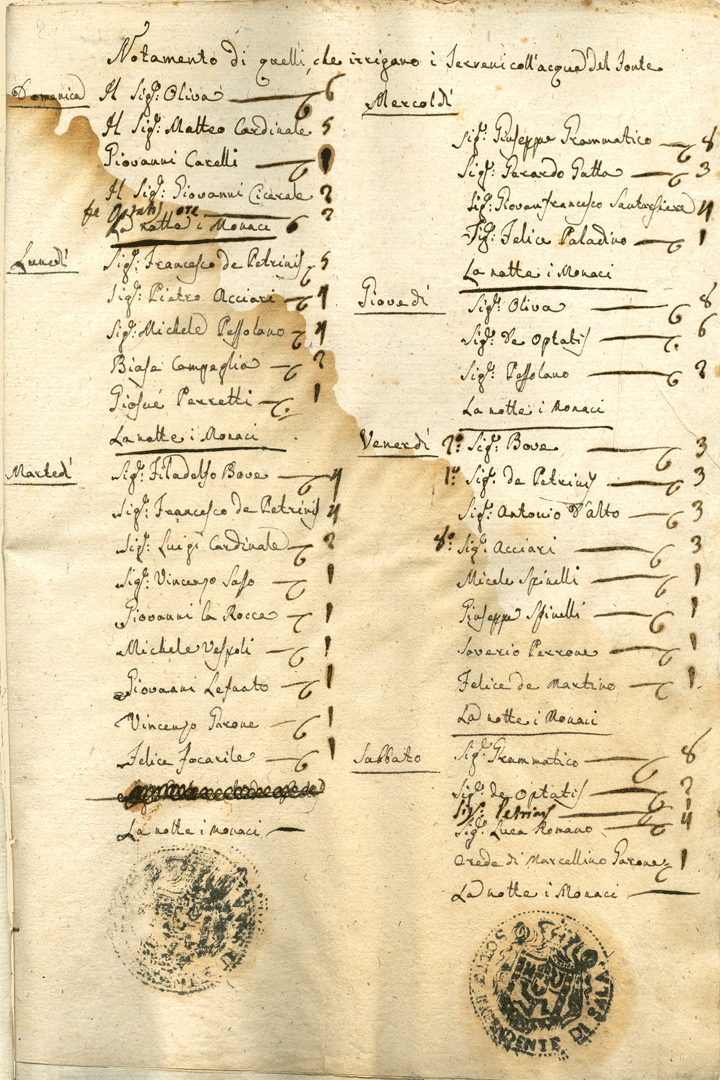 Notamento di quelli, che irrigano i Terreni coll'acqua del Fonte
Domenica Il Sig.r Oliva 6
Il Sig.r Matteo Cardinale 5
Giovanni Carelli 1
Il Sig.r Giovanni Cicerale 2
De Optatis ore 2
La notte i Monaci 6
Lunedì Sig.r Francesco de Petrinis 5
Sig.r Pietro Acciari 4
Sig.r Michele Pessolano 4
Biase Campeglia 2
Giosuè Perretti 1
La notte i Monaci
Martedì Sig.r Filadelfo Bove 4
Sig.r Francesco de Petrinis 4
Sig.r Luigi Cardinale 2
Sig.r Vincenzo Sasso 1
Giovanni la Rocca 1
Michele Vespoli 1
Giovanni Lefnato 1
Vincenzo Garone 1
Felice Focarile 1
La notte i Monaci
Mercoldì
Sig.r Giuseppe Grammatico 8
Sig.r Gerardo Gatta 3
Sig.r Giovan Francesco Santorsiere 4
Sig.r Felice Paladino 1
La notte i Monaci
Giovedì Sig.r Oliva 8
Sig.r De Optatis 6
Sig.r Pessolano 2
La notte i Monaci
Venerdì 2.° Sig.r Bove 3
1.° Sig.r de Petrinis 3
Sig.r Antonio D'Alto 3
8.° Sig.r Acciari 3
Micele Spinelli 1
Giuseppe Spinelli 1
Saverio Perrone 1
Felice de Martino 1
La notte i Monaci
Sabbato Sig.r Grammatico 8
Sig.r de Optatis 2
Sig.r Petrinis 1
Sig.r Luca Romano 4
Erede di Marcellino Garone 1
La notte i Monaci